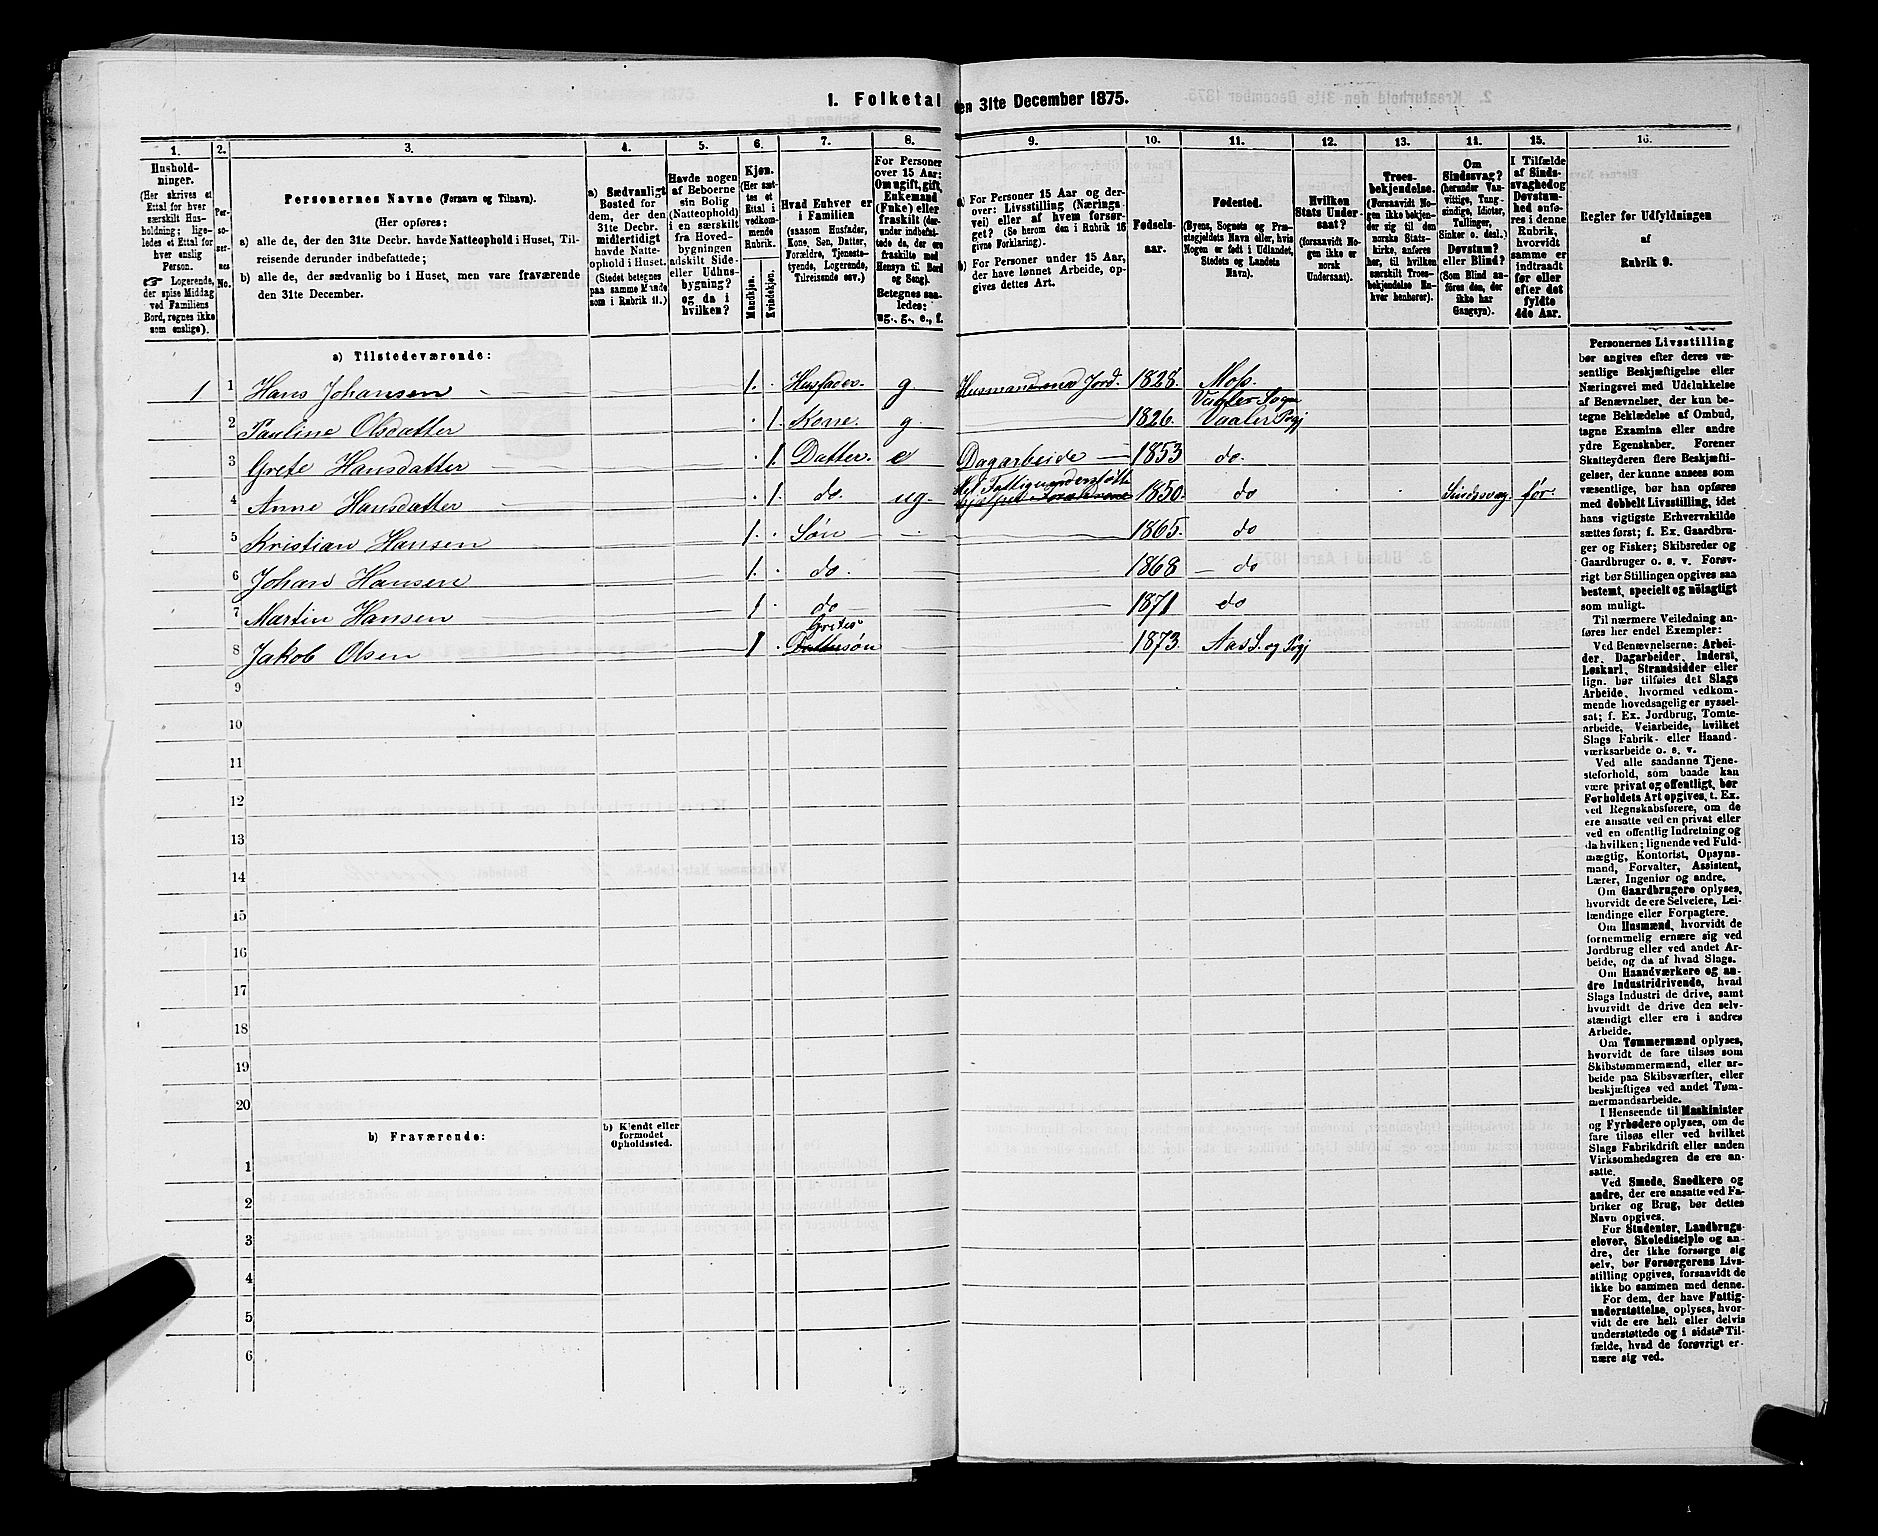 1. Folketal den 31te December 1875.
1. 2. 3. 4. 5. 6. 7. 8. 9. 10. 11. 12. 13. 14. 15. 16.
Hushold-
ninger.
(Her skrives et
Ettal for hver
særskilt Hus-
holdning; lige-
ledes et Ettal for
hver enslig
Person.
☞ Logerende,
der spise Middag
ved Familiens
Bord, regnes ikke
som enslige).
Per-
so-
ner-
nes
No.
Personernes Navne (Fornavn og Tilnavn).
(Her opføres:
a) alle de, der den 31te Decbr. havde Natteophold i Huset, Til-
reisende derunder indbefattede;
b) alle de, der sædvanlig bo i Huset, men vare fraværende
den 31te December.
a) Sædvanligt
Bosted for
dem, der den
31te Decbr.
midlertidigt
havde Natte-
ophold i Huset.
(Stedet betegnes
paa samme Maade
som i Rubrik 11.)
Havde nogen
af Beboerne
sin Bolig
(Natteophold)
i en særskilt
fra Hoved-
bygningen
adskilt Side-
eller Udhus-
bygning?
og da i
hvilken?
Kjøn.
(Her sæt-
tes et
Ettal i
vedkom-
mende
Rubrik.
Mandkjøn.
Kvindekjøn.
Hvad Enhver er
i Familien
(saasom Husfader,
Kone, Søn, Datter,
Forældre, Tjeneste-
tyende, Logerende,
Tilreisende osv.)
For Personer
over 15 Aar:
Om ugift, gift,
Enkemand
(Enke) eller
fraskilt (der-
under indbefat-
tede da, der ere
fraskilte med
Hensyn til Bord
og Seng).
Betegnes saa-
ledes:
ug., g., e., f.
a) For Personer 15 Aar og der-
over: Livsstilling (Nærings-
vei) eller af hvem forsør-
get? (Se herom den i Rubrik 16
givne Forklaring).
b) For Personer under 15 Aar,
der have lønnet Arbeide, op-
gives dettes Art.
Fødsels-
aar.
Fødested.
(Byens, Sognets og Præ-
stegjeldets Navn eller, hvis
Nogen er født i Udlandet,
Stedets og Landets
Navn).
Hvilken
Stats Under-
saat?
(forsaavidt No-
gen ikke er
norsk
Undersaat).
Troes-
bekjendelse.
(Forsaavidt No-
gen ikke bekjen-
der sig til den
norske Stats-
kirke, anføres
her, til hvilken
særskilt Troes-
bekjendelse En-
hver henhører).
Om
Sindssvag?
(herunder Van-
vittige, Tung-
sindige, Idioter,
Tullinger,
Sinker o. desl.)
Døvstum?
eller Blind?
(Som Blind an-
føres den, der
ikke har
Gangsyn).
I Tilfælde
af Sinds-
svaghed og
Døvstum-
hed anfø-
res i denne
Rubrik,
hvorvidt
samme er
indtraadt
før eller
efter det
fyldte
4de Aar.
Regler før Udfyldningen
af
Rubrik 9.
a) Tilstedeværende:
1 1 Hans Johansen 1. Husfader. g. Husmand med Jord. 1828. Moss.
2 Pauline Olsdatter 1. Kone. g. 1826. Vaaler Sogn Vaaler Prgj
3 Grete Hansdatter 1. Datter. e Dagarbeide 1853 do.
4 Anne Hansdatter 1 do. ug. Fattigunderstøtt. 1850. do Sindssvag før
5 Kristian Hansen 1. Søn 1865. do
6 Johan Hansen 1. do. 1868 do
7 Martin Hansen 1 do 1871 do
8 Jakob Olsen 1 Gretes Dattersøn 1873. Aas S. og Prgj
9
10
11
12
13
14
15
16
17
18
19
20
b) Fraværende:
b) Kjendt eller
formodet
Opholdssted.
1
2
3
4
5
6
Personernes Livsstilling
bør angives efter deres væ-
sentlige Beskjæftigelse eller
Næringsvei med Udelukkelse
af Benævnelser, der kun be-
tegne Beklædelse af Ombud,
tagne Examina eller andre
ydre Egenskaber. Forener
Skatteyderen flere Beskjæfti-
gelser, der kunne ansees som
væsentlige, bør han opføres
med dobbelt Livsstilling, idet
hans vigtigste Erhvervskilde
sættes først; f. Ex. Gaardbru-
ger og Fisker; Skibsreder og
Gaardbruger o. s. v. Forøv-
rigt bør Stillingen opgives saa
bestemt, specielt og nöiagtigt
som muligt.
Til nærmere Veiledning an-
føres her endel Exempler:
Ved Benævnelserne: Arbei-
der, Dagarbeider, Inderst,
Løskarl, Strandsidder eller
lign. bør tilføies det Slags
Arbeide, hvormed vedkom-
mende hovedsagelig er syssel-
sat; f. Ex. Jordbrug, Tomte-
arbeide, Veiarbeide, hvilket
Slags Fabrik- eller Haand-
værksarbeide o. s. v.
Ved alle saadanne Tjene-
steforhold, som baade kan
være privat og offentligt, bør
Forholdets Art opgives, t. Ex.
ved Regnskabsførere, om de
ere ansatte ved en privat eller
ved en offentlig Indretning og
da hvilken; lignende ved Fuld-
mægtig, Kontorist, Opsyns-
mand, Forvalter, Assistent,
Lærer, Ingeniør og andre.
Om Gaardbrugere oplyses,
hvorvidt de ere Selveiere, Lei-
lændinge eller Forpagtere.
Om Husmænd, hvorvidt de
fornemmelig ernære sig ved
Jordbrug eller ved andet Ar-
beide, og da af hvad Slags.
Om Haandværkere og an-
dre Industridrivende, hvad
Slags Industri de drive, samt
hvorvidt de drive den selv-
stændigt eller ere i andres
Arbeide.
Om Tømmermænd oplyses,
hvorvidt de fare tilsøs som
Skibstømmermænd, eller ar-
beide paa Skibsværfter, eller
beskjæftiges ved andet Tøm-
mermandsarbeide.
I Henseende til Maskinister
og Fyrbødere oplyses, om de
fare tilsøs eller ved hvilket
Slags Fabrikdrift eller anden
Virksomhedsgren de ere an-
satte.
Ved Smede, Snedkere og
andre, der ere ansatte ved Fa-
briker og Brug, bør dettes
Navn opgives.
For Studenter, Landbrugs-
elever, Skoledisciple og an-
dre, der ikke forsørge sig
selv, bør Forsørgerens Livs-
stilling opgives, forsaavidt de
ikke bo sammen med denne.
For dem, der have Fattig-
understøttelse, oplyses, hvor-
vidt de ere helt eller delvis
understøttede og i sidste Til-
fælde, hvad de forøvrigt er-
nære sig ved.